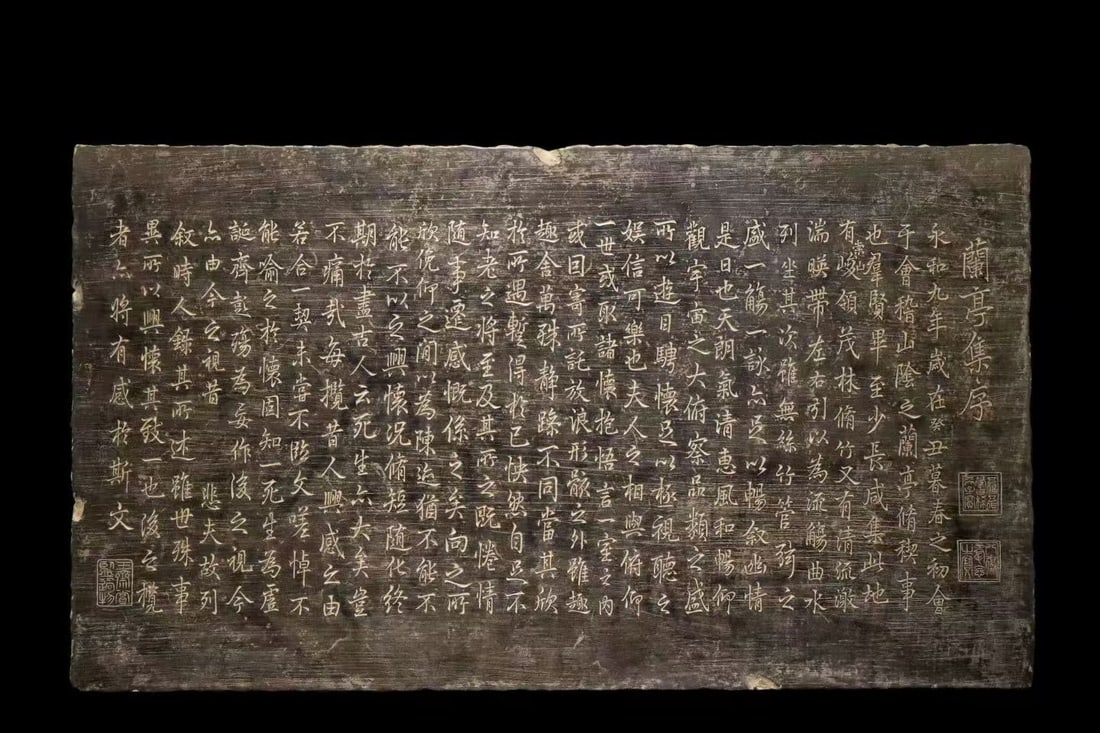 蘭亭集序
永和九年歲在癸丑暮春之初會
于會稽山陰之蘭亭脩禊事
也羣賢畢至少長咸集此地
有崇山峻領茂林脩竹又有清流激
湍暎帶左右引以為流觴曲水
列坐其次雖無絲竹管弦之
盛一觴一詠亦足以暢敘幽情
是日也天朗氣清惠風和暢仰
觀宇宙之大俯察品類之盛
所以遊目騁懷足以極視聽之
娛信可樂也夫人之相與俯仰
一世或取諸懷抱悟言一室之內
或因寄所託放浪形骸之外雖趣
趣舍萬殊静躁不同當其欣
於所遇暫得於己快然自足不
知老之將至及其所之既惓情
隨事遷感慨係之矣向之所
欣俛仰之閒以為陳迹猶不能不
能不以之興懷況脩短隨化終
期於盡古人云死生亦大矣豈
不痛哉每攬昔人興感之由
若合一契未嘗不臨文嗟悼不
能喻之於懷固知一死生為虛
誕齊彭殤為妄作後之視今
亦由今之視昔 悲夫故列
敘時人錄其所述雖世殊事
異所以興懷其致一也後之攬
者亦將有感於斯文